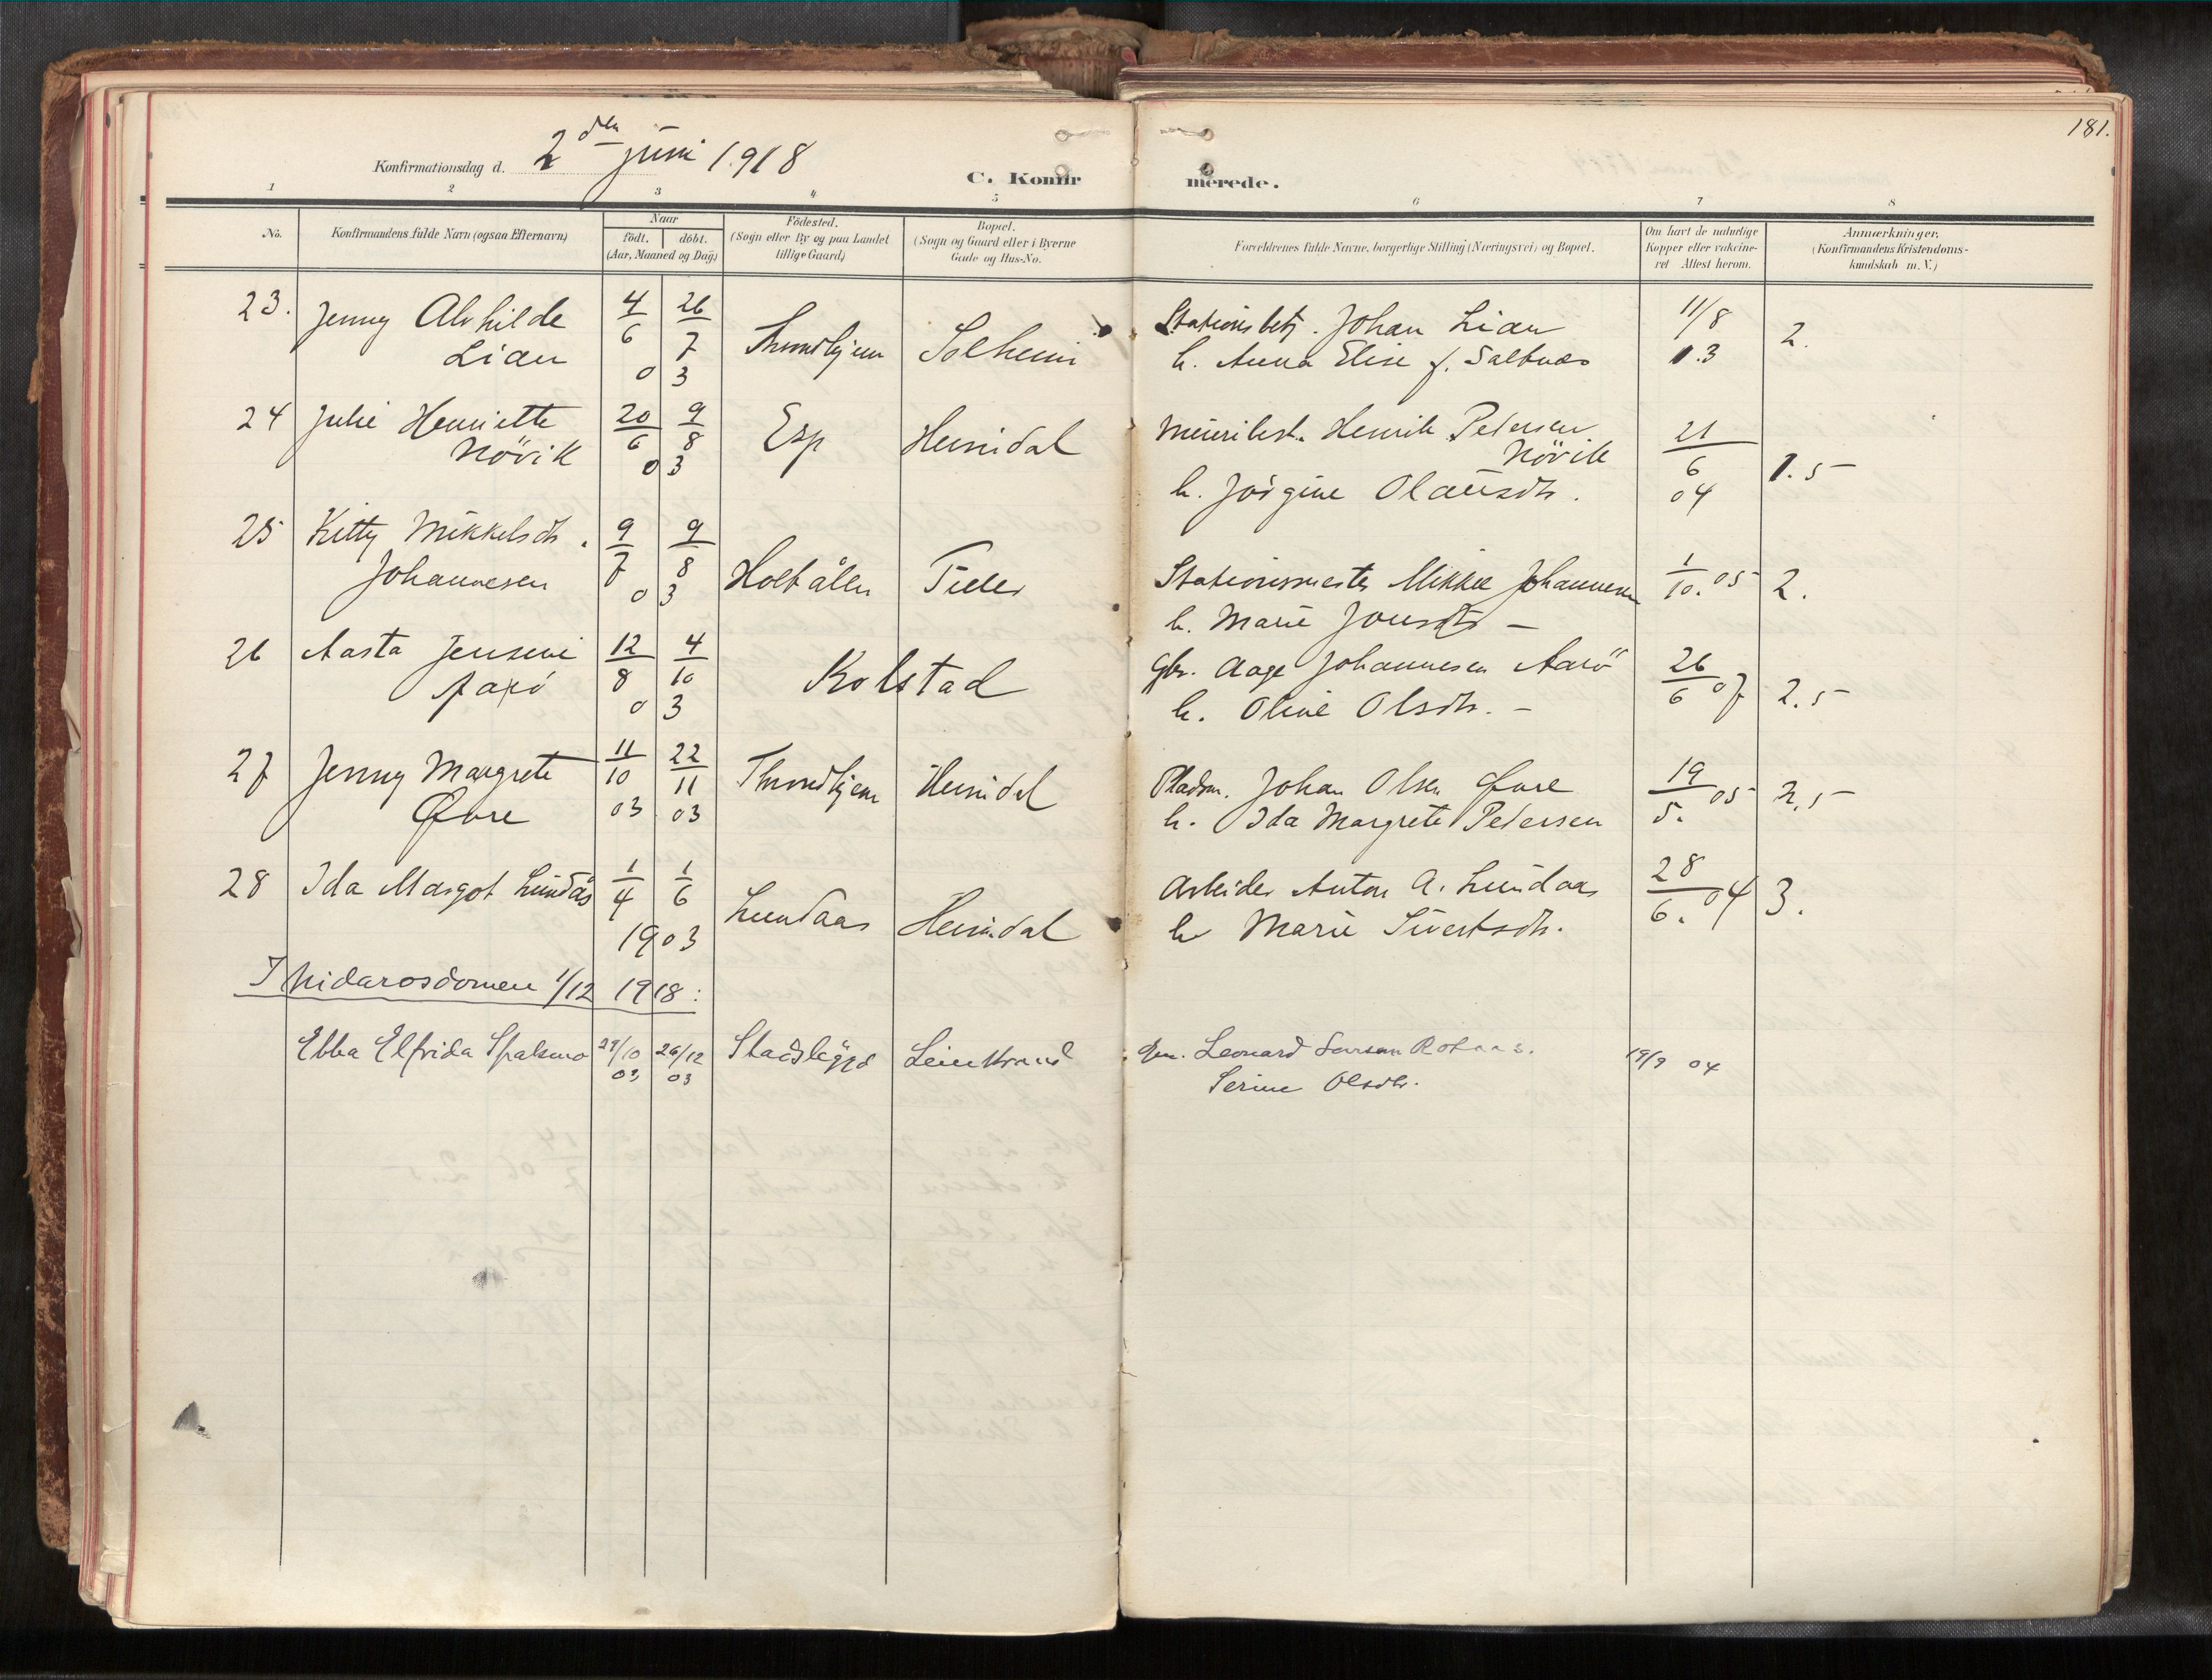 181.
Konfirmationsdag d. 2den juni 1918
C. Konfirmerede.
1 2 3 4 5 6 7 8
No.
Konfirmandens fulde Navn (ogsaa Efternavn)
Naar
födt. döbt.
(Aar, Maaned og Dag)
Födested.
(Sogn eller By og paa Landet
tillige Gaard)
Bopæl.
(Sogn og Gaard eller i Byerne
Gade og Hus-No.
Forældrenes fulde Navne, borgerlige Stilling (Næringsvei) og Bopæl.
Om havt de naturlige
Kopper eller vakcine-
ret Attest herom.
Anmærkninger,
(Konfirmandens Kristendoms-
kundskab m. V.)
23. Jenny Alvhilde 4/6 26/7 Stationsbetj. Johan Lian 11/8
Lian 03 Trondhjem Solheim h. Anna Elise f. Saltnes 03 2.
24 Julie Henriette 20/6 9/8 Esp Heimdal Meieribest. Henrik Petersen 21/6
Növik 03 Növik 04 1.5
h. Jörgine Olausdtr.
25 Kitty Mikkelsdtr. 9/7 9/8
Johannesen 03 Holtålen Tiller Stationsmester Mikkel Johannesen 1/10. 05 2.
h. Marie Jonsdtr —
26 Aasta Jensine 12/8 4/10 Kolstad Gbr. Aage Johannesen Aarö 26/6 07 2.5
03 h. Oline Olsdtr. —
27 Jenny Margrete 11/10 22/11 Trondhjem Heimdal Pladsm. Johan Olsen Øvre 19/5. 05 2,5
Øvre 03 03 h. Ida Margrete Petersen
28 Ida Margot Lundås 1/4 1/6 Lundaas Heimdal Arbeider Anton A. Lundaas 28/6. 04 3.
1903 h Marie Sivertsdtr.
I Nidarosdomen 1/12 1918:
Ebba Elfrida 27/10 26/12 Stadsbygd Leinstrand Leonard 19/9 04
03 03 Serine Olsdtr.